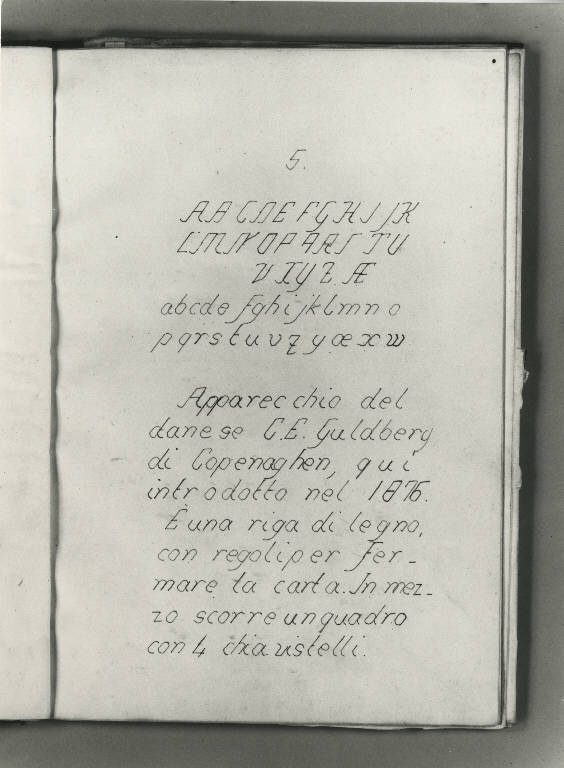 5.
A A C D E F G H I J K
L M N O P A R S T U
V I Y Z Æ
a b c d e f g h i j k l m n o
p q r s t u v z y æ x w
Apparecchio del
danese C.E. Guldberg
di Copenaghen, qui
introdotto nel 1876.
È una riga di legno,
con regoli per fer-
mare la carta. In mez-
zo scorre un quadro
con 4 chiavistelli.